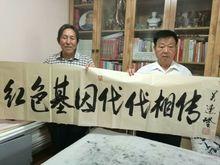 红色基因代代相传